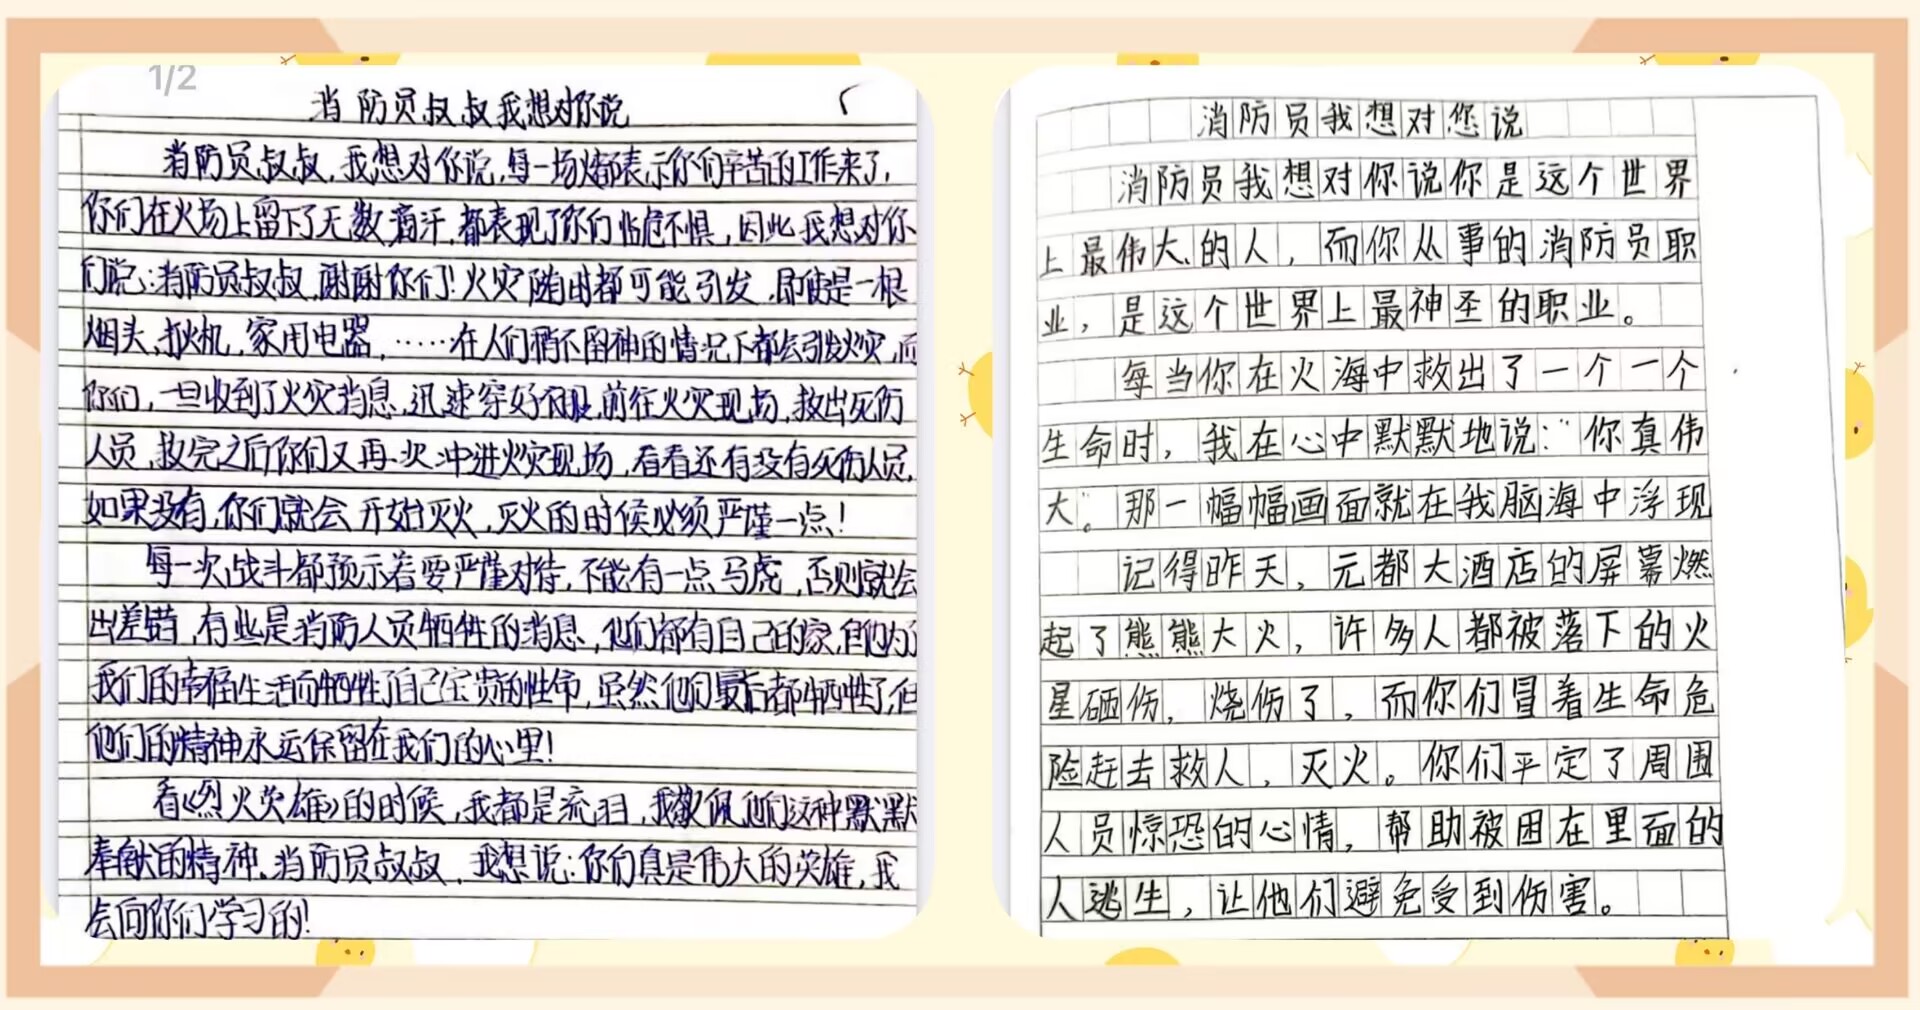 1/2
消防员叔叔我想对你说
消防员叔叔,我想对你说,每一场火都表示你们辛苦的工作来了,
你们在火场上留下了无数滴汗,都表现了你们临危不惧,因此我想对你
们说:消防员叔叔,谢谢你们!火灾随时都可能引发,即使是一根
烟头、打火机,家用电器,……在人们稍不留神的情况下都会引发火灾,而
你们,一旦收到了火灾消息,迅速穿好衣服,前往火灾现场,救出死伤
人员,救完之后你们又再一次冲进火灾现场,看看还有没有死伤人员,
如果没有,你们就会开始灭火,灭火的时候必须严谨一点!
每一次战斗都预示着要严谨对待,不能有一点马虎,否则就会
出差错,有些是消防人员牺牲的消息,他们都有自己的家,但他为了
我们的幸福生活而牺牲了自己宝贵的性命,虽然他们最后都牺牲了,但
他们的精神永远保留在我们的心里!
看《烈火英雄》的时候,我都是流泪,我敬佩他们这种默默
奉献的精神,消防员叔叔,我想说:你们真是伟大的英雄,我
会向你们学习的!
消防员我想对您说
消防员我想对你说你是这个世界
上最伟大的人,而你从事的消防员职
业,是这个世界上最神圣的职业。
每当你在火海中救出了一个一个
生命时,我在心中默默地说:“你真伟
大”。那一幅幅画面就在我脑海中浮现
记得昨天,元都大酒店的屏幕燃
起了熊熊大火,许多人都被落下的火
星砸伤,烧伤了,而你们冒着生命危
险赶去救人,灭火。你们平定了周围
人员惊恐的心情,帮助被困在里面的
人逃生,让他们避免受到伤害。